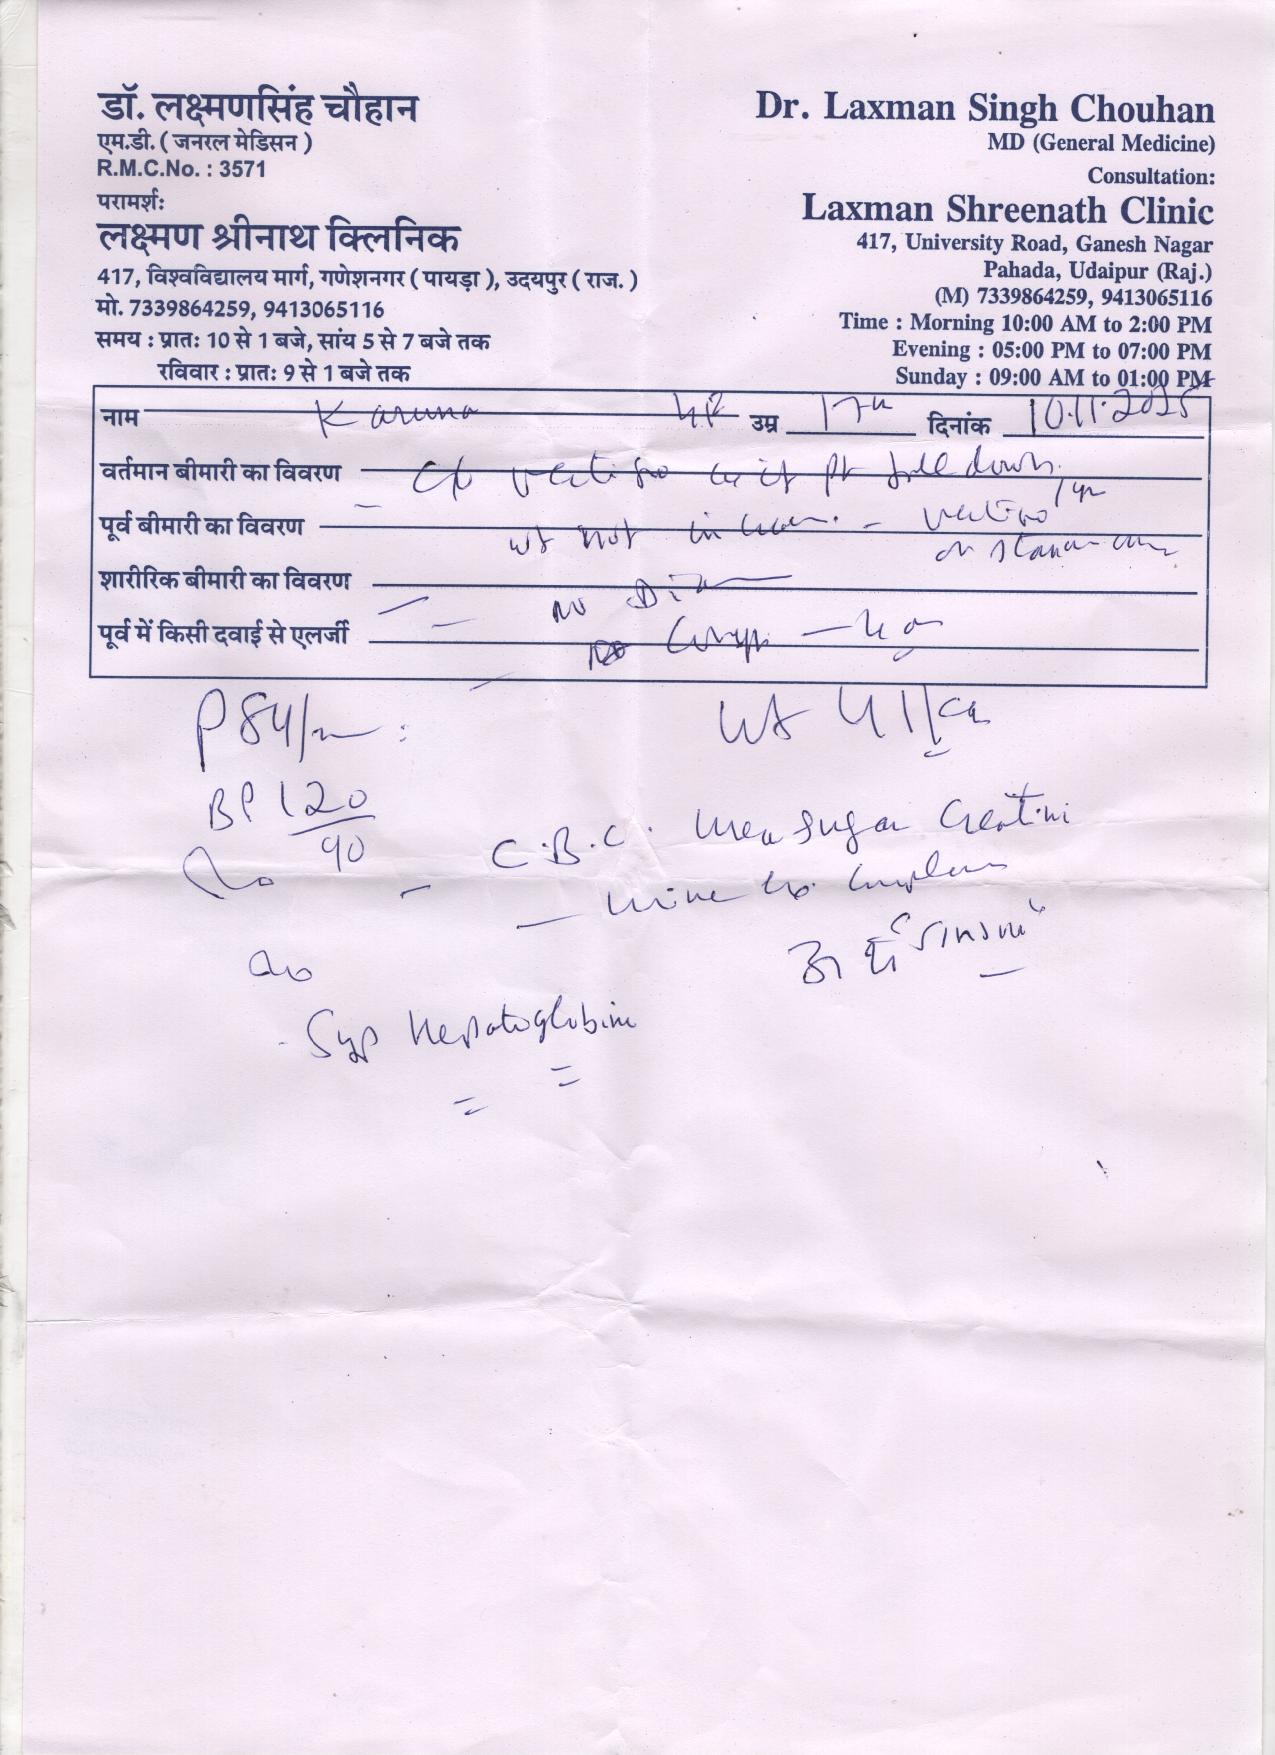 डॉ. लक्ष्मणसिंह चौहान
एम.डी. ( जनरल मेडिसन )
R.M.C.No. : 3571
परामर्श:
लक्ष्मण श्रीनाथ क्लिनिक
417, विश्वविद्यालय मार्ग, गणेशनगर ( पायड़ा ), उदयपुर ( राज. )
मो. 7339864259, 9413065116
समय : प्रातः 10 से 1 बजे, सांय 5 से 7 बजे तक
रविवार : प्रातः 9 से 1 बजे तक
Dr. Laxman Singh Chouhan
MD (General Medicine)
Consultation:
Laxman Shreenath Clinic
417, University Road, Ganesh Nagar
Pahada, Udaipur (Raj.)
(M) 7339864259, 9413065116
Time : Morning 10:00 AM to 2:00 PM
Evening : 05:00 PM to 07:00 PM
Sunday : 09:00 AM to 01:00 PM
नाम Karuna उम्र 17 दिनांक 10.11.2025
वर्तमान बीमारी का विवरण c/o vertigo pt fall down
पूर्व बीमारी का विवरण wt not vertigo
on
शारीरिक बीमारी का विवरण no
पूर्व में किसी दवाई से एलर्जी
P 84/m wt 41
BP 120/90
C.B.C. Urea Sugar Creatini
Urine
Syp Hepatoglobine